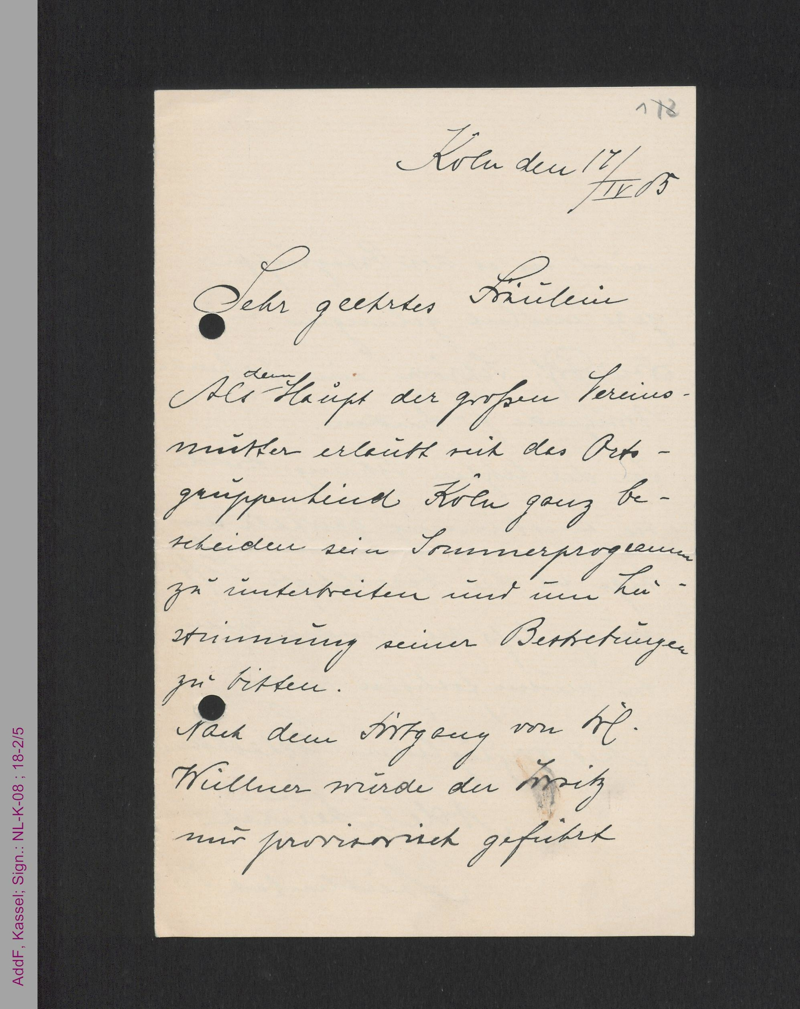 18
Köln den 17/IV 05
Sehr geehrtes Fräulein
dem
Als Haupt der großen Vereins-
mutter erlaubt sich das Orts-
gruppenkind Köln ganz be-
scheiden sein Sommerprogramm
zu unterbreiten und um Zu-
stimmung seiner Bestrebungen
zu bitten.
Nach dem Fortgang von Frl.
Wüllner wurde der Vorsitz
nur provisorisch geführt
AddF, Kassel; Sign.: NL-K-08 ; 18-2/5